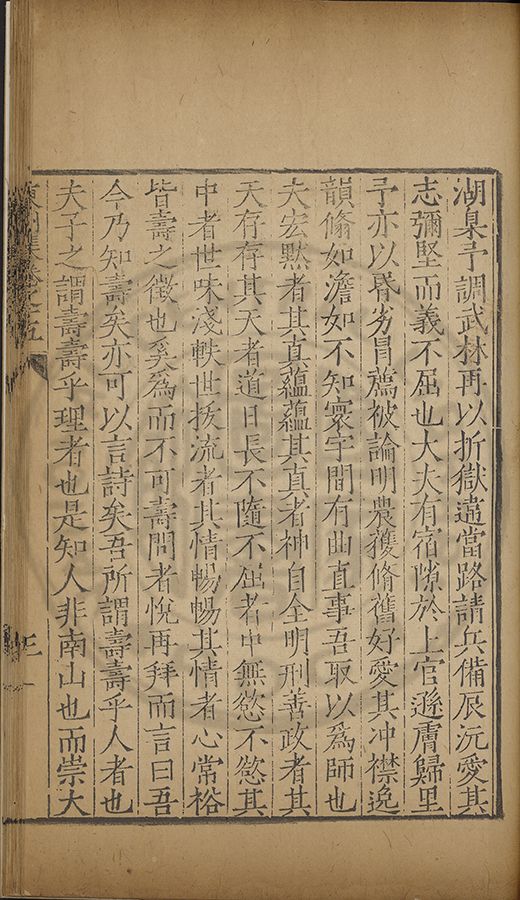 湖臬予調武林再以折獄違當路請兵備辰沅愛其
志彌堅而義不屈也大夫有宿隙於上官遜膚歸里
予亦以昏劣冒薦被論明農獲脩舊好愛其冲襟逸
韻翛如澹如不知寰宇間有曲直事吾取以爲師也
夫宏黙者其真蘊蘊其真者神自全明刑善政者其
天存存其天者道日長不隨不屈者中無慾不慾其
中者世味淺軼世拔流者其情暢暢其情者心常裕
皆壽之徵也奚爲而不可壽問者悅再拜而言曰吾
今乃知壽矣亦可以言詩矣吾所謂壽壽乎人者也
夫子之謂壽壽乎理者也是知人非南山也而崇大
集卷之五